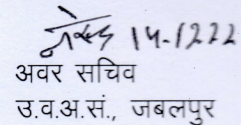 14-1222
अवर सचिव
उ.व.अ.सं., जबलपुर